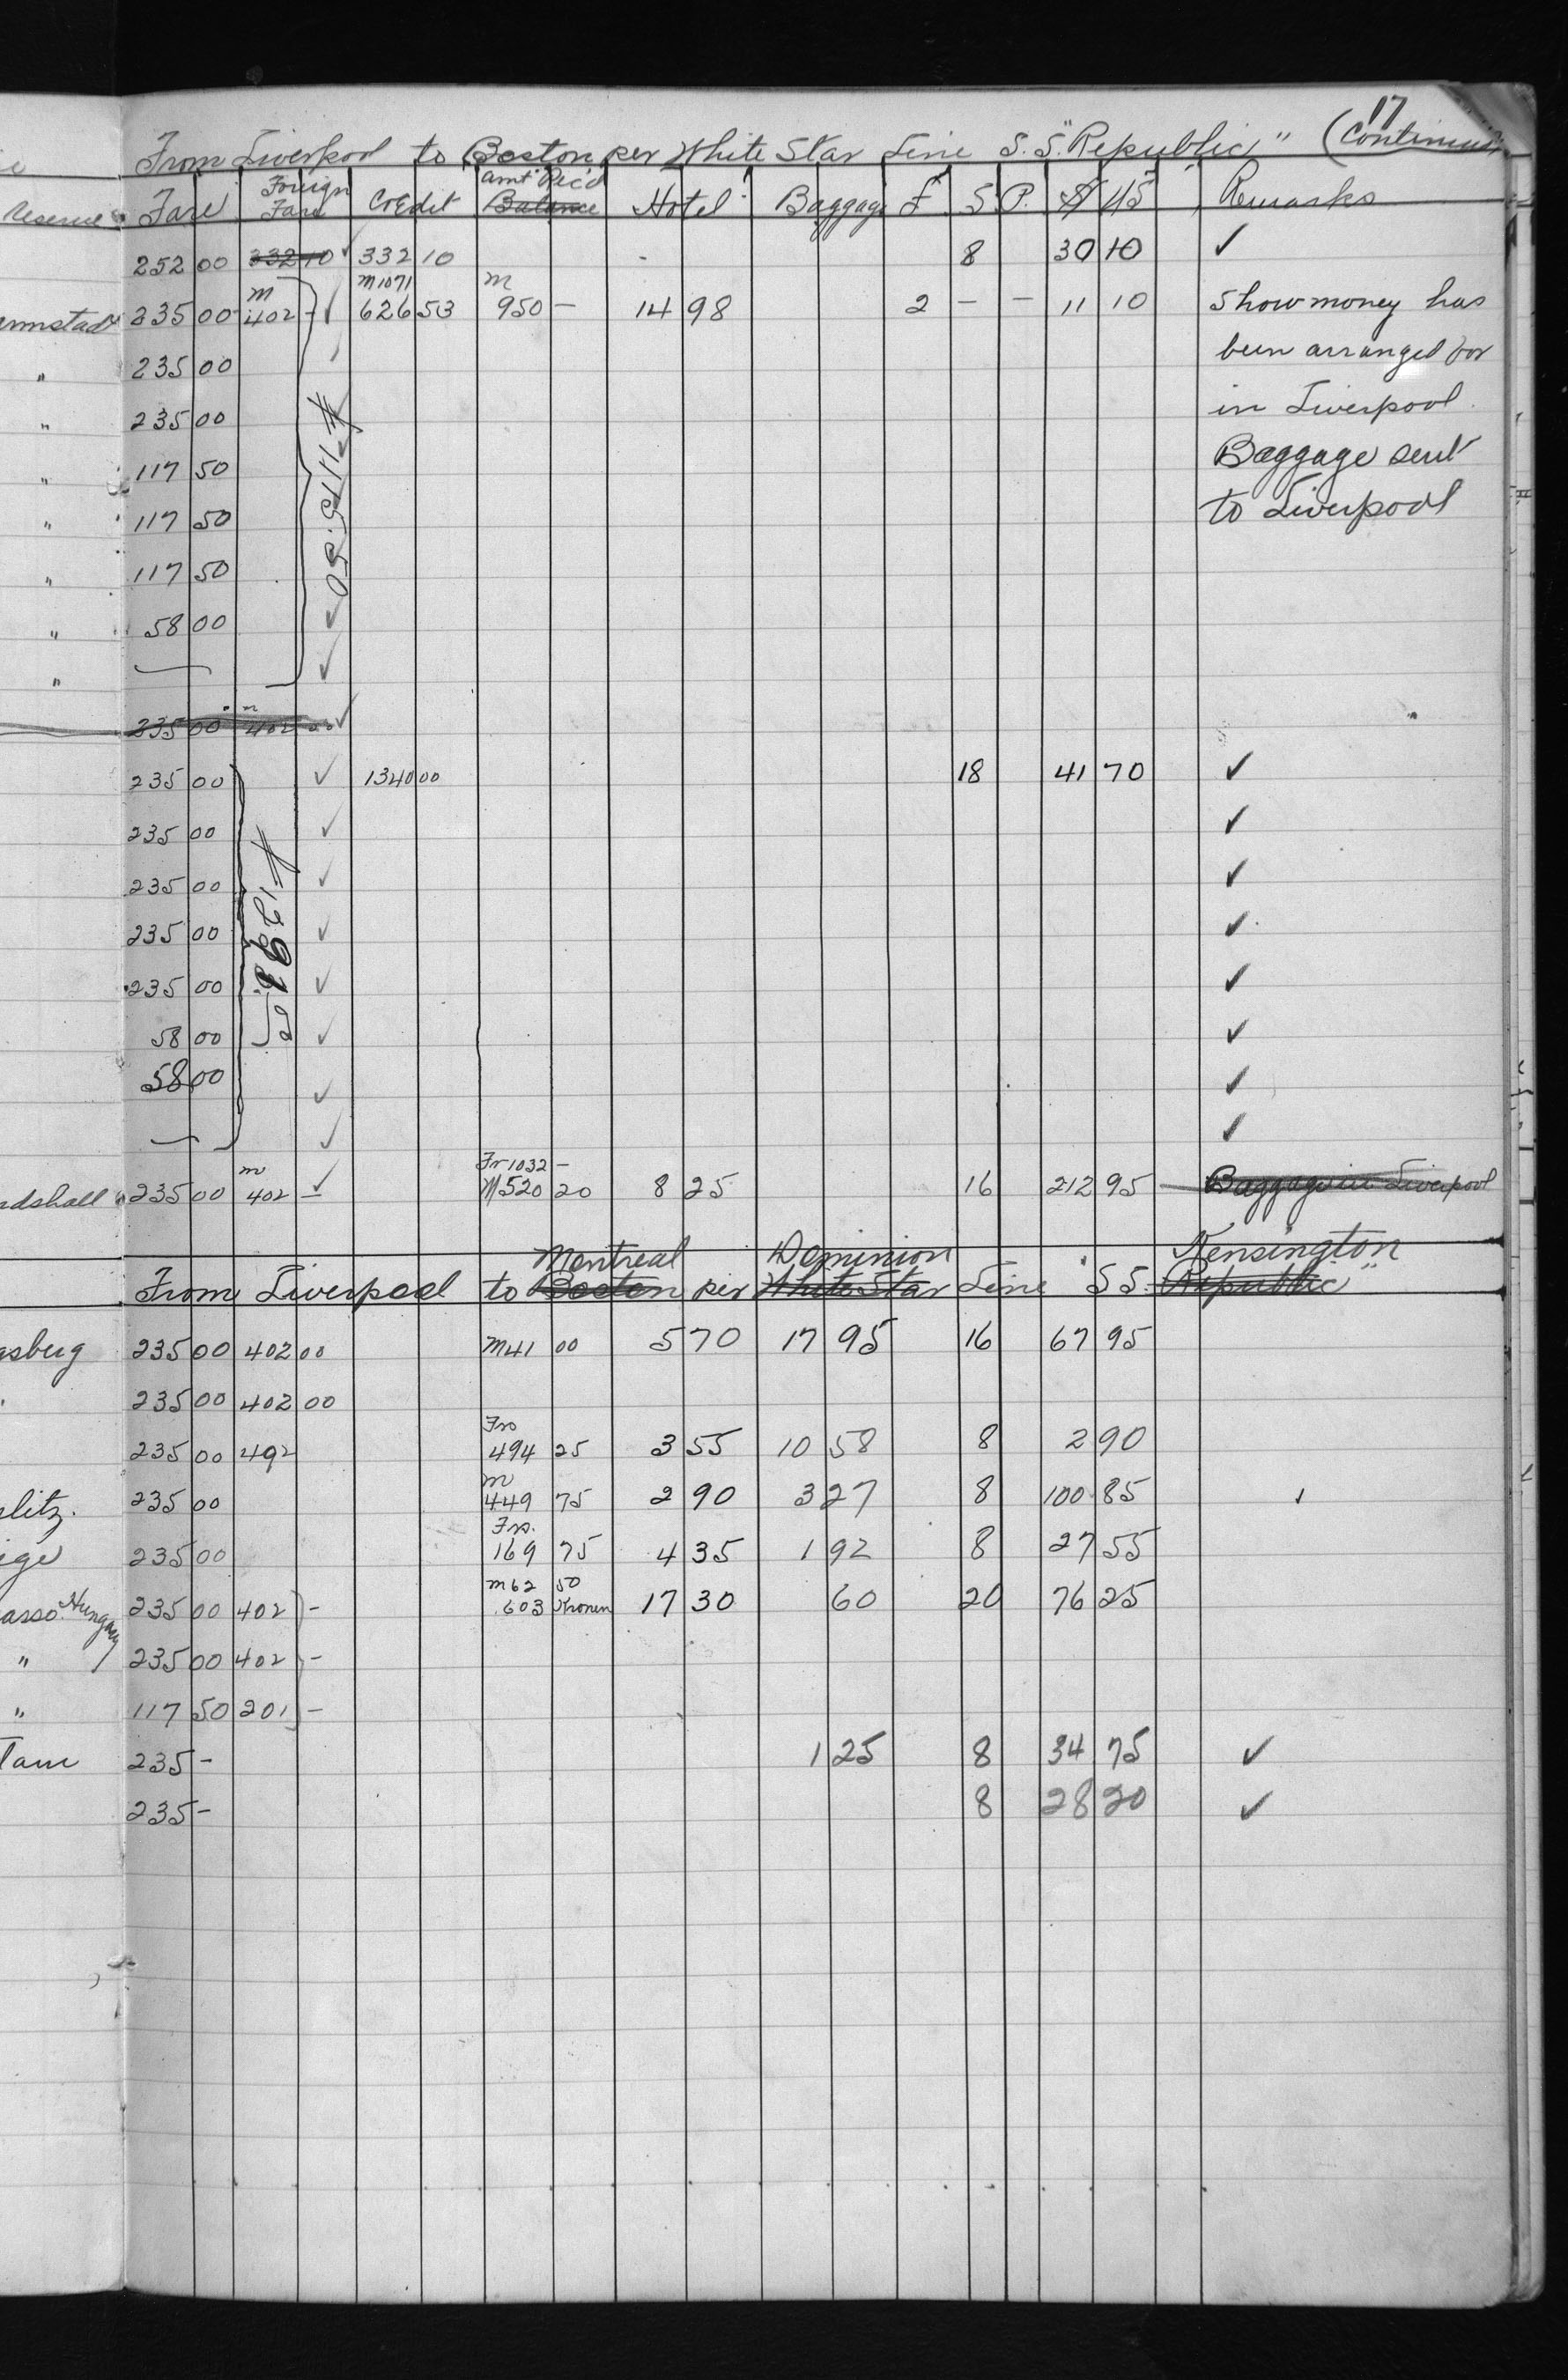 17
From Liverpool to Boston per White Star Line S.S. "Republic" (Continued)
Reserve Fare Foreign Fare Credit Amt Rec'd Balance Hotel Baggage £ S P. $ US Remarks
252 00 332 10 ✓ 332 10 8 30 10 ✓
M1071 M
235 00 M 402 - ✓ 626 53 950 - 14 98 2 - - 11 10 Show money has
" 235 00 been arranged for
" 235 00 in Liverpool.
" 117 50 Baggage sent
" 117 50 to Liverpool
" 117 50
" 58 00 ✓
" — ✓
235 00 m 402 ✓
235 00 ✓ 1340 00 18 41 70 ✓
235 00 ✓ ✓
235 00 ✓ ✓
235 00 ✓ ✓
235 00 ✓ ✓
58 00 ✓ ✓
58 00 ✓ ✓
— ✓ ✓
Fr 1032 -
235 00 m 402 - ✓ M520 20 8 25 16 212 95 Baggage in Liverpool
Montreal Dominion Kensington
From Liverpool to Boston per White Star Line S S. Republic"
235 00 402 00 M41 00 5 70 17 95 16 67 95
235 00 402 00
Frs
235 00 402 494 25 3 55 10 58 8 2 90
m
235 00 449 75 2 90 3 27 8 100 85
Frs.
235 00 169 75 4 35 1 92 8 27 55
M62 50
Hungary 235 00 402 - 603 Kronen 17 30 60 20 76 25
" 235 00 402 -
" 117 50 201 -
235 - 1 25 8 34 75 ✓
235 - 8 28 20 ✓